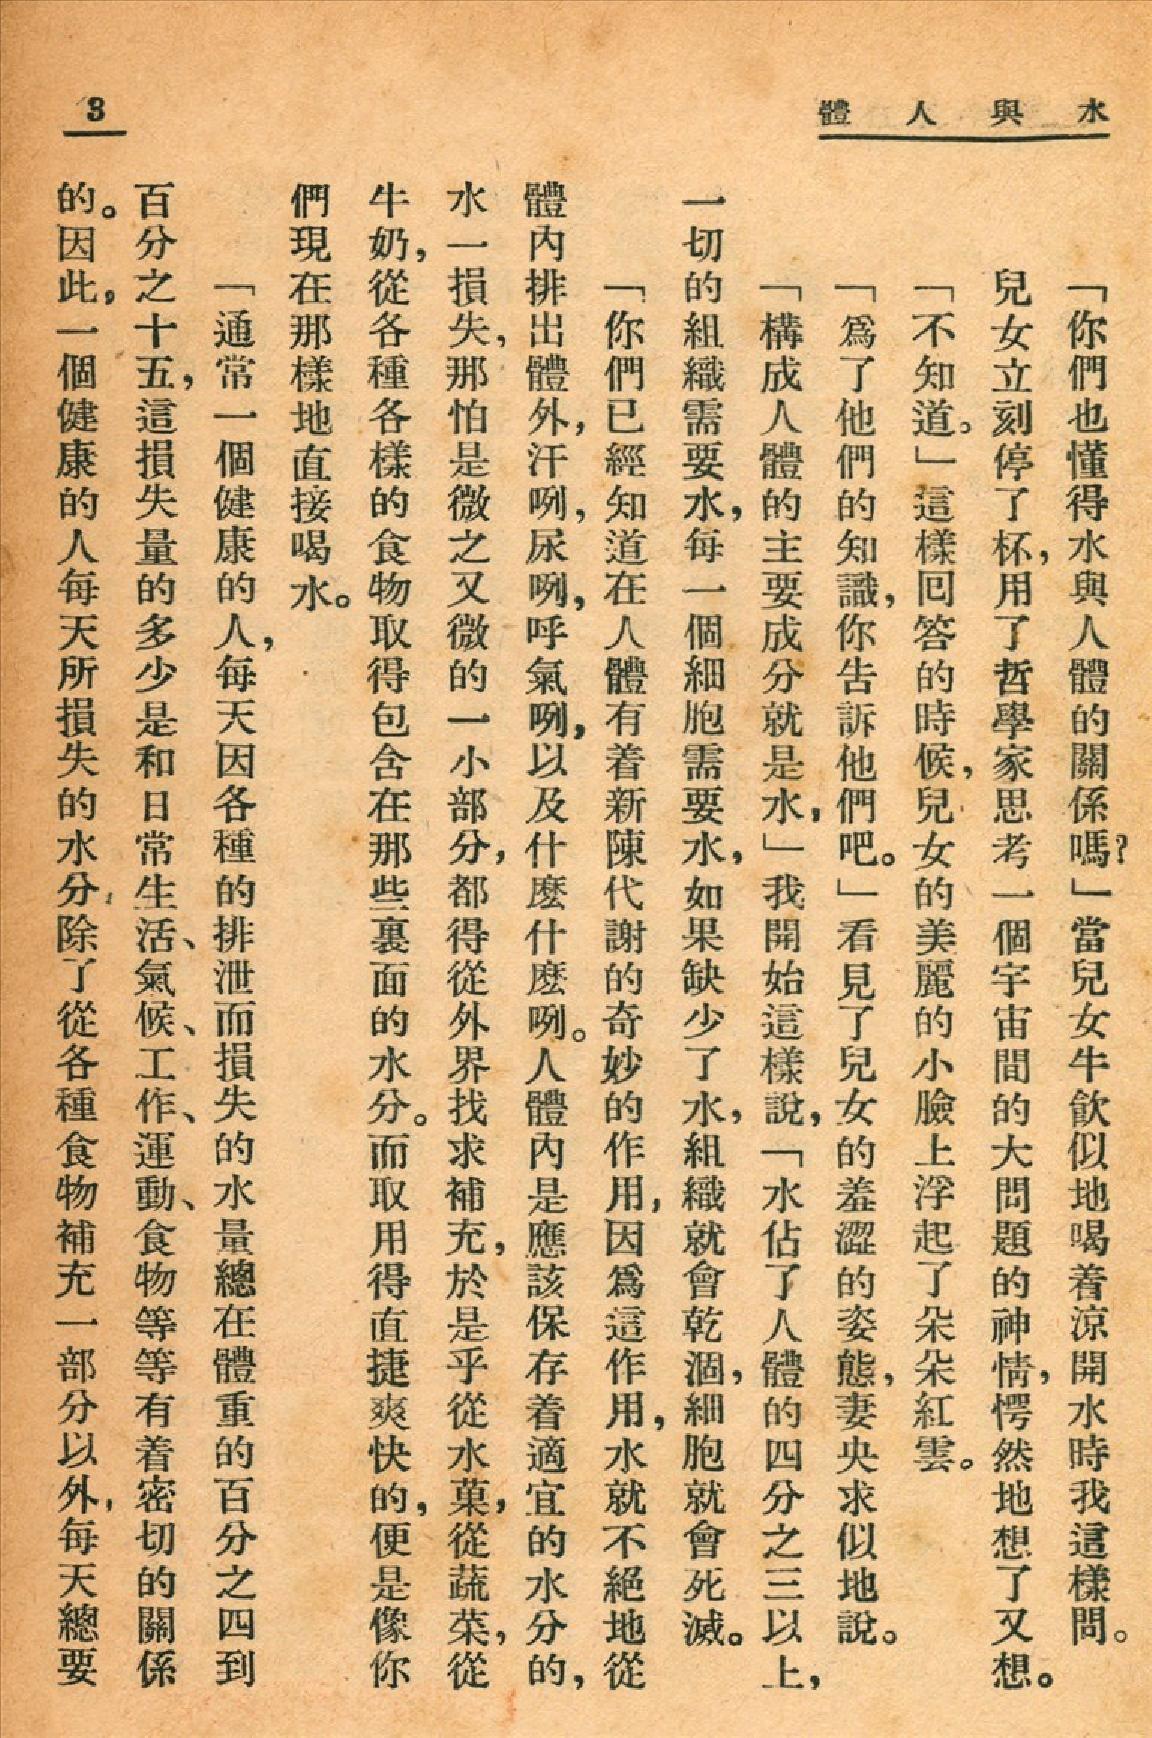 水與人體
3
「你們也懂得水與人體的關係嗎?」當兒女牛飲似地喝着涼開水時我這樣問。
兒女立刻停了杯,用了哲學家思考一個宇宙間的大問題的神情,愕然地想了又想。
「不知道。」這樣回答的時候,兒女的美麗的小臉上浮起了朵朵紅雲。
「爲了他們的知識,你告訴他們吧。」看見了兒女的羞澀的姿態,妻央求似地說。
「構成人體的主要成分就是水,」我開始這樣說,「水佔了人體的四分之三以上,
一切的組織需要水,每一個細胞需要水,如果缺少了水,組織就會乾涸,細胞就會死滅。
「你們已經知道在人體有着新陳代謝的奇妙的作用,因爲這作用,水就不絕地從
體內排出體外,汗咧,尿咧,呼氣咧,以及什麼什麼咧。人體內是應該保存着適宜的水分的,
水一損失,那怕是微之又微的一小部分,都得從外界找求補充,於是乎從水菓,從蔬菜,從
牛奶,從各種各樣的食物取得包含在那些裏面的水分。而取用得直捷爽快的,便是像你
們現在那樣地直接喝水。
「通常一個健康的人,每天因各種的排泄而損失的水量總在體重的百分之四到
百分之十五,這損失量的多少是和日常生活、氣候、工作、運動、食物等等有着密切的關係
的。因此,一個健康的人每天所損失的水分,除了從各種食物補充一部分以外,每天總要